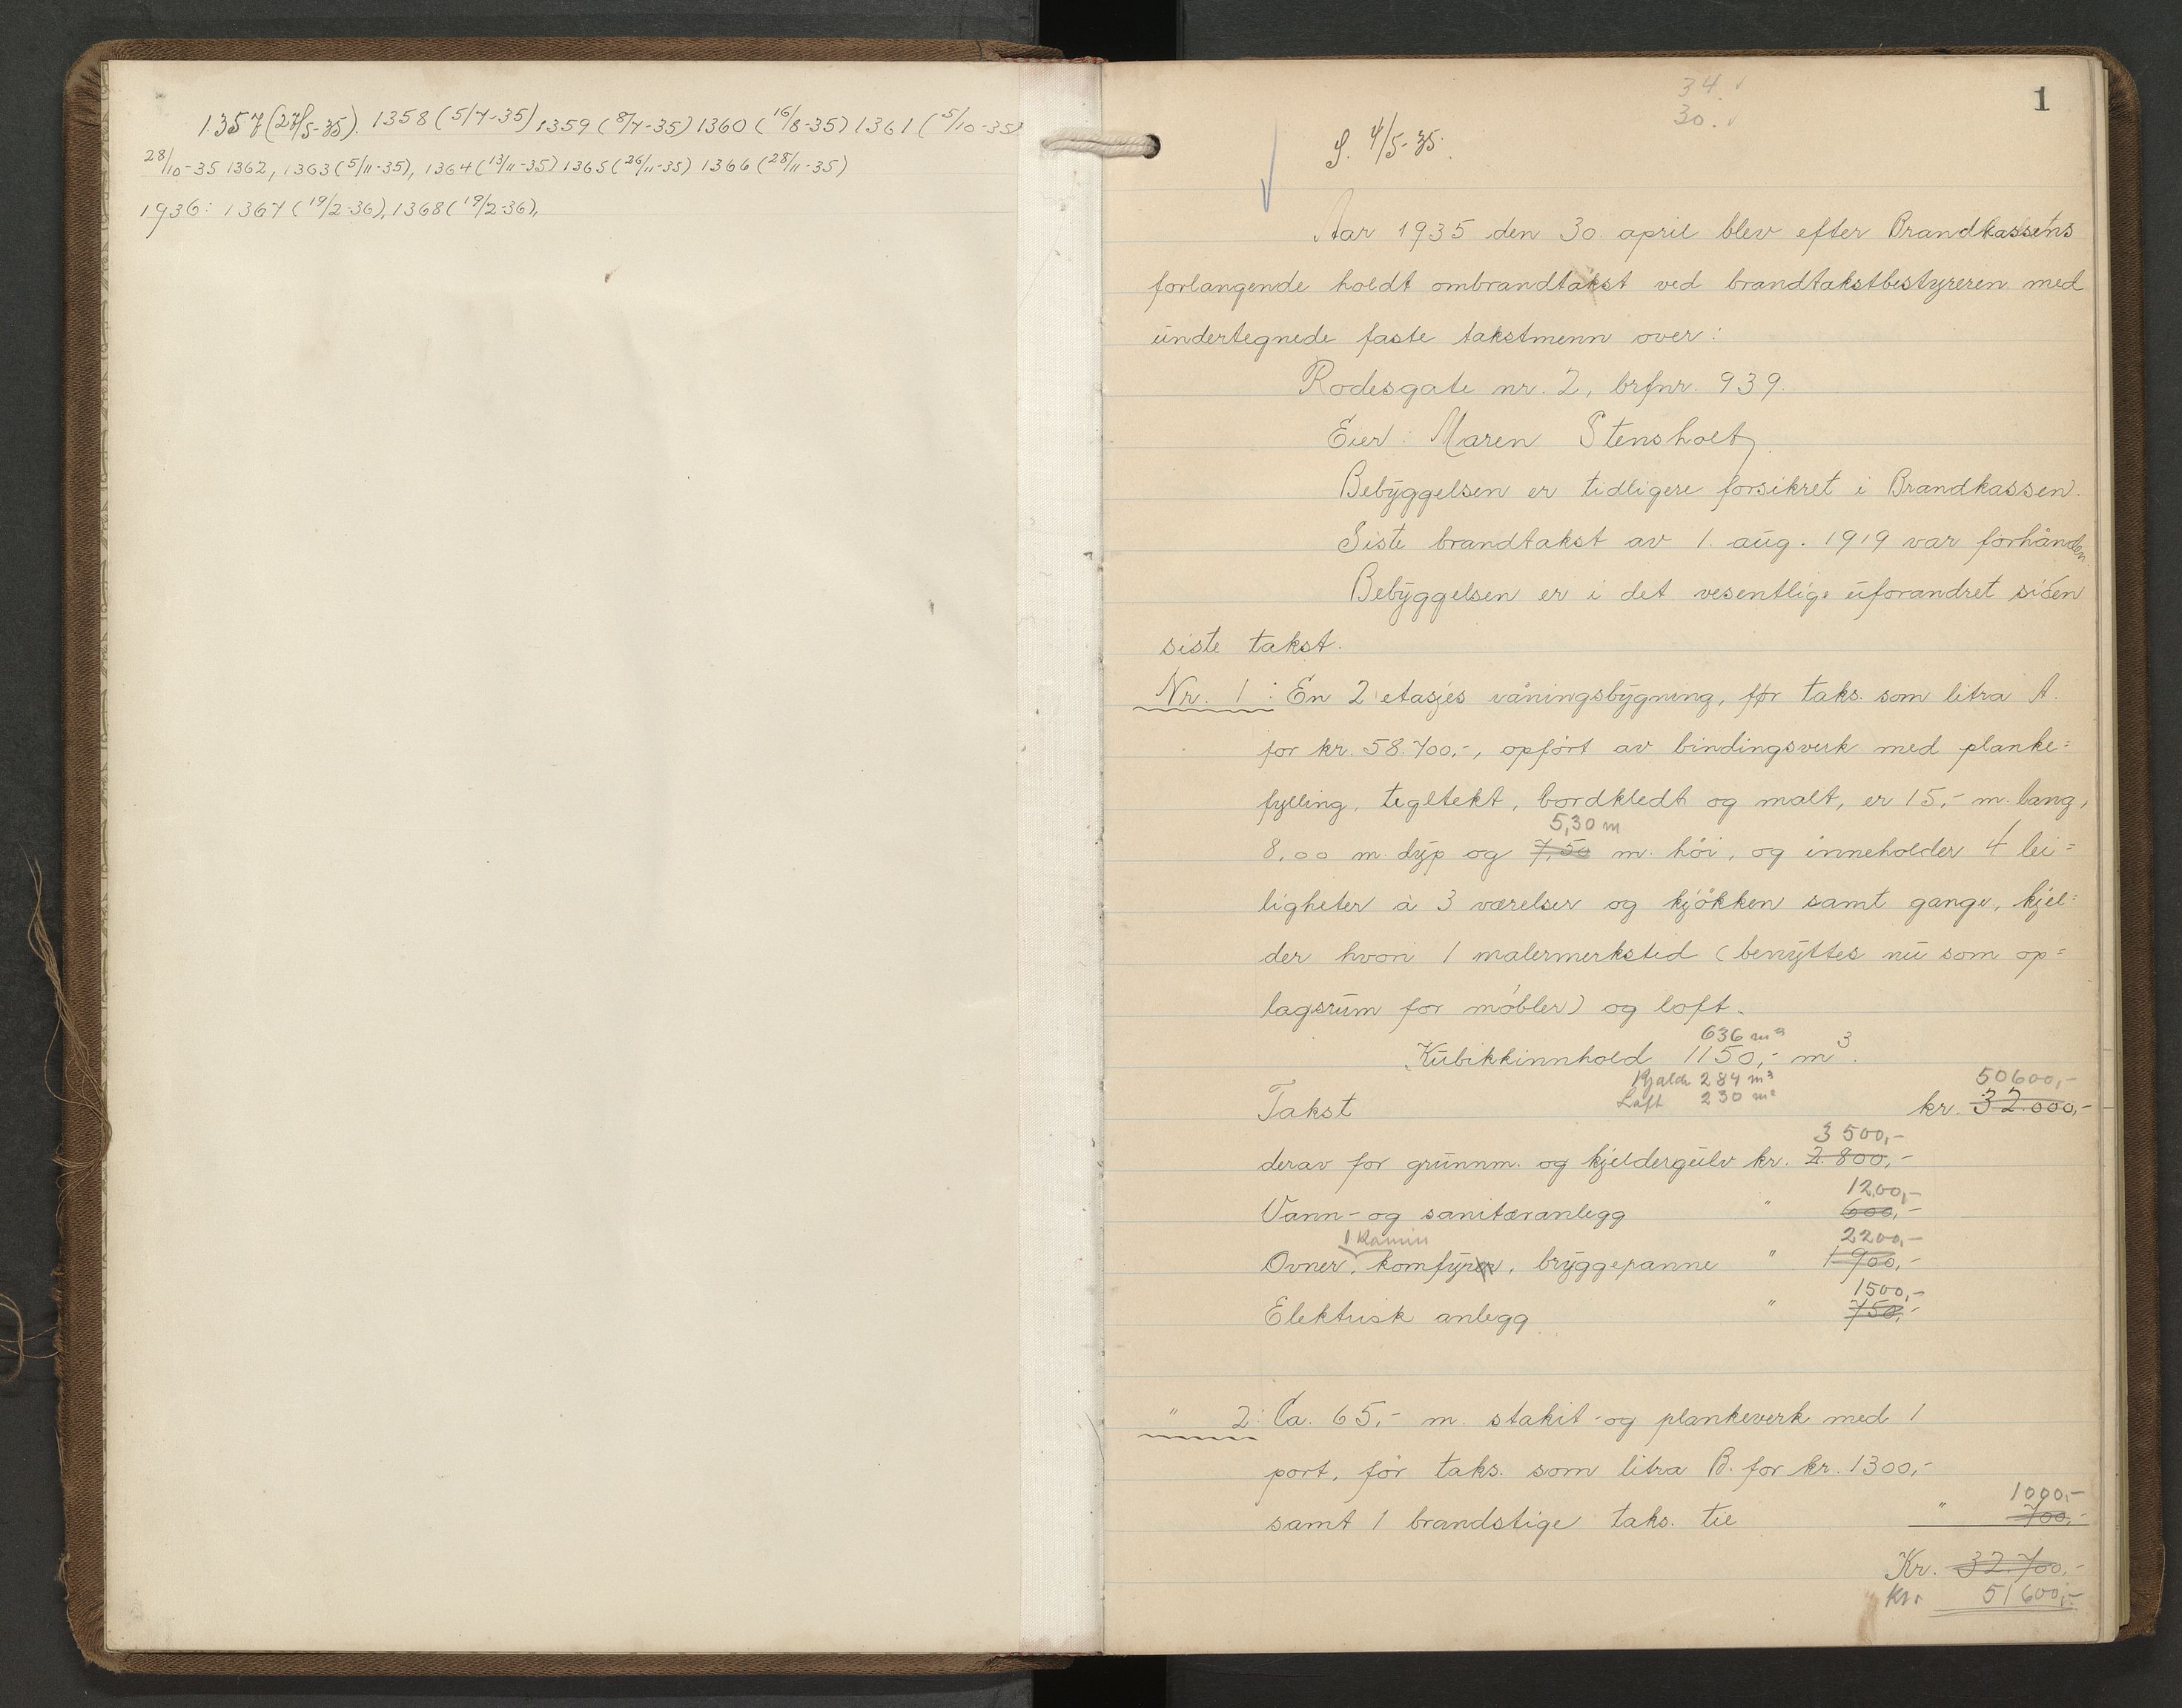 1357 (27/5-35). 1358 (5/7-35) 1359 (8/7-35) 1360 (16/8-35) 1361 (5/10-35)
28/10-35 1362, 1363 (5/11-35), 1364 (13/11-35) 1365 (26/11-35) 1366 (28/11-35)
1936: 1367 (19/2-36), 1368 (19/2-36),
34.
30.
1
S. 4/5-35.
Aar 1935 den 30. april blev efter Brandkassens
forlangende holdt ombrandtakst ved brandtakstbestyreren med
undertegnede faste takstmenn over:
Rodesgate nr. 2, brfnr. 939.
Eier: Maren Stensholt.
Bebyggelsen er tidligere forsikret i Brandkassen.
Siste brandtakst av 1. aug. 1919 var forhånden.
Bebyggelsen er i det vesentlige uforandret siden
siste takst.
Nr. 1: En 2 etasjes våningsbygning, før taks. som litra A.
for kr. 58.700,-, opført av bindingsverk med planke=
fylling, tegltekt, bordkledt og malt, er 15,- m. lang,
5,30 m
8,00 m. dyp og 7,50 m. høi, og inneholder 4 lei=
ligheter à 3 værelser og kjøkken samt gange, kjel=
der hvori 1 malermerksted (benyttes nu som op=
lagsrum for møbler) og loft.
636 m³
Kubikkinnhold 1150,- m³.
Kjelder 284 m³
50600,-
Loft 230 m³
Takst kr. 32.000,-
3500,-
derav for grunnm. og kjeldergulv kr. 2.800,-
1200,-
Vann- og sanitæranlegg " 600,-
1 Kamin 2200,-
Ovner, komfyrer, bryggepanne " 1900,-
1500,-
Elektrisk anlegg " 750,-
" 2: Ca. 65,- m. stakit- og plankeverk med 1
port, før taks. som litra B. for kr. 1300,-
1000,-
samt 1 brandstige taks. til " 700,-
Kr. 32.700,-
kr. 51600,-